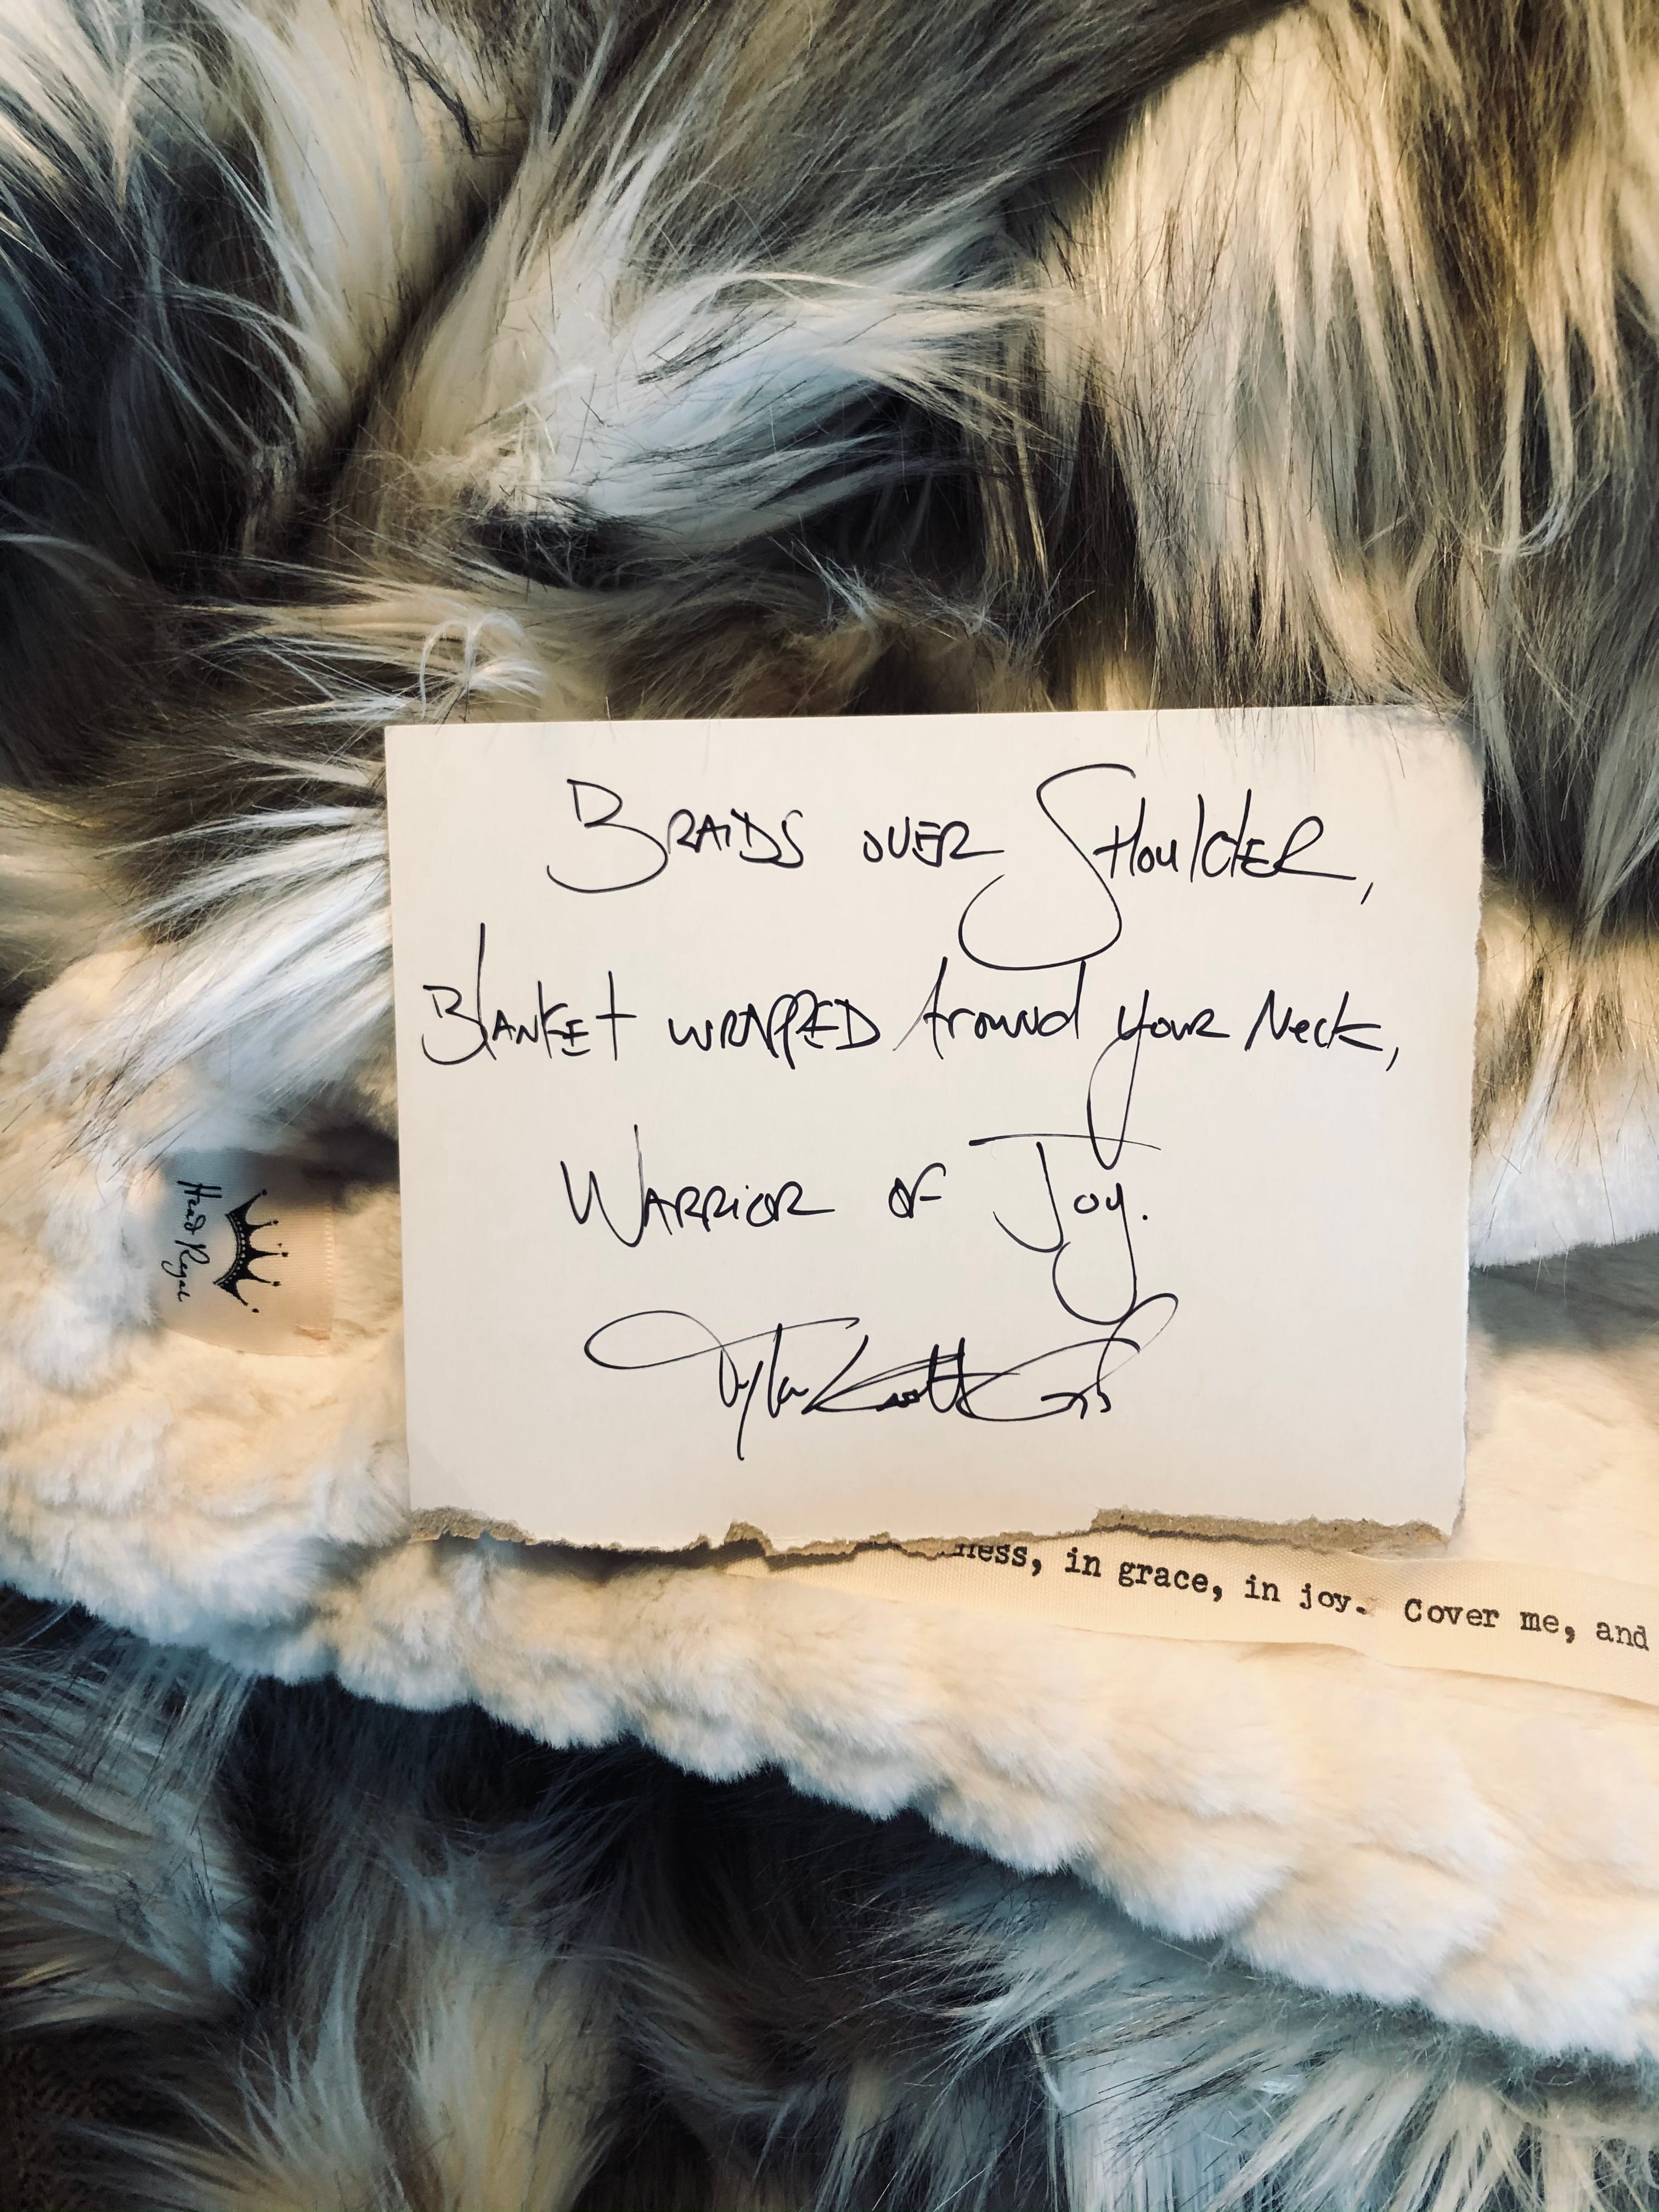 Braids over Shoulder,
Blanket wrapped Around your Neck,
Warrior of Joy.
Tyler Knott Gregson
ness, in grace, in joy. Cover me, and